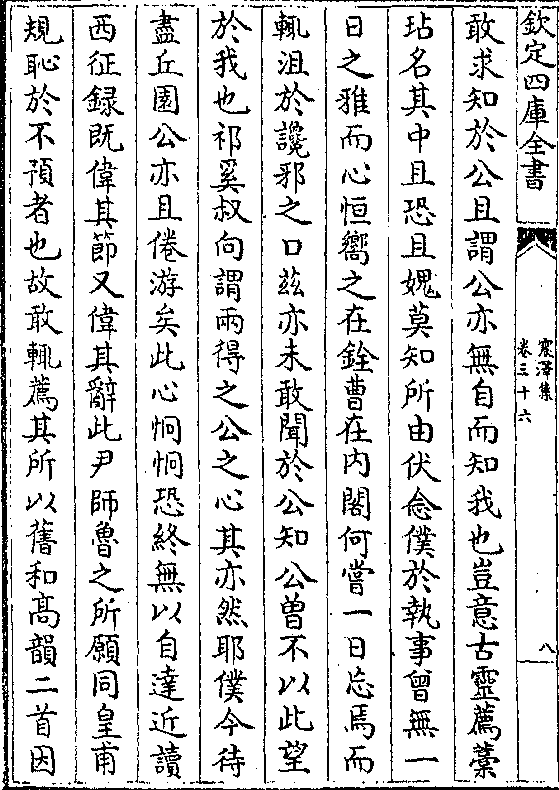 欽定四庫全書
震澤集
卷三十六
八
敢求知於公且謂公亦無自而知我也豈意古靈薦藁
玷名其中且恐且媿莫知所由伏念僕於執事曾無一
日之雅而心恒嚮之在銓曹在内閣何嘗一日忘焉而
輒沮於讒邪之口兹亦未敢聞於公知公曾不以此望
於我也祁奚叔向謂兩得之公之心其亦然耶僕今待
盡丘園公亦且倦游矣此心恫恫恐終無以自達近讀
西征録既偉其節又偉其辭此尹師魯之所願同皇甫
規恥於不預者也故敢輒薦其所以舊和髙韻二首因